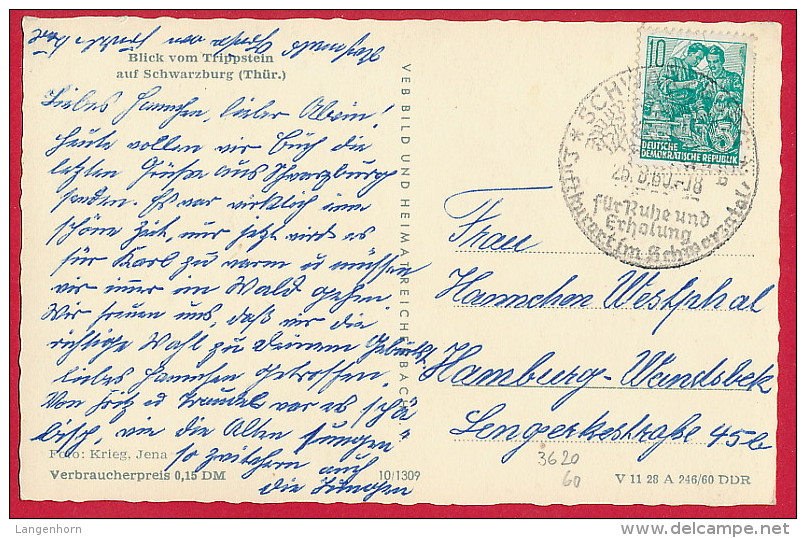 Blick vom Trippstein
auf Schwarzburg (Thür.)
Liebes Hannchen, lieber Alwin!
Heute wollen wir Euch die
letzten Grüße aus Schwarzburg
senden. Es war wirklich eine
schöne Zeit, nur jetzt wird es
für Karl zu warm u müssen
wir immer im Wald gehen.
Wir freuen uns, daß wir die
richtige Wahl zu Deinem Geburtst.
liebes Hannchen getroffen.
Von Fritz u Traudel war es schä
bisch, wie die Alten sungen"
so zwitschern auch
die Jungen
Foto: Krieg, Jena
Verbraucherpreis 0,15 DM
10/1309
VEB BILD UND HEIMAT REICHENBACH
10
DEUTSCHE
DEMOKRATISCHE REPUBLIK
60.-18
für Ruhe und
Erholung
Luftkurort im Schwarzatal
Frau
Hannchen Westphal
Hamburg-Wandsbek
Lengerkestraße 45b
3620
60
V 11 28 A 246/60 DDR
Langenhorn